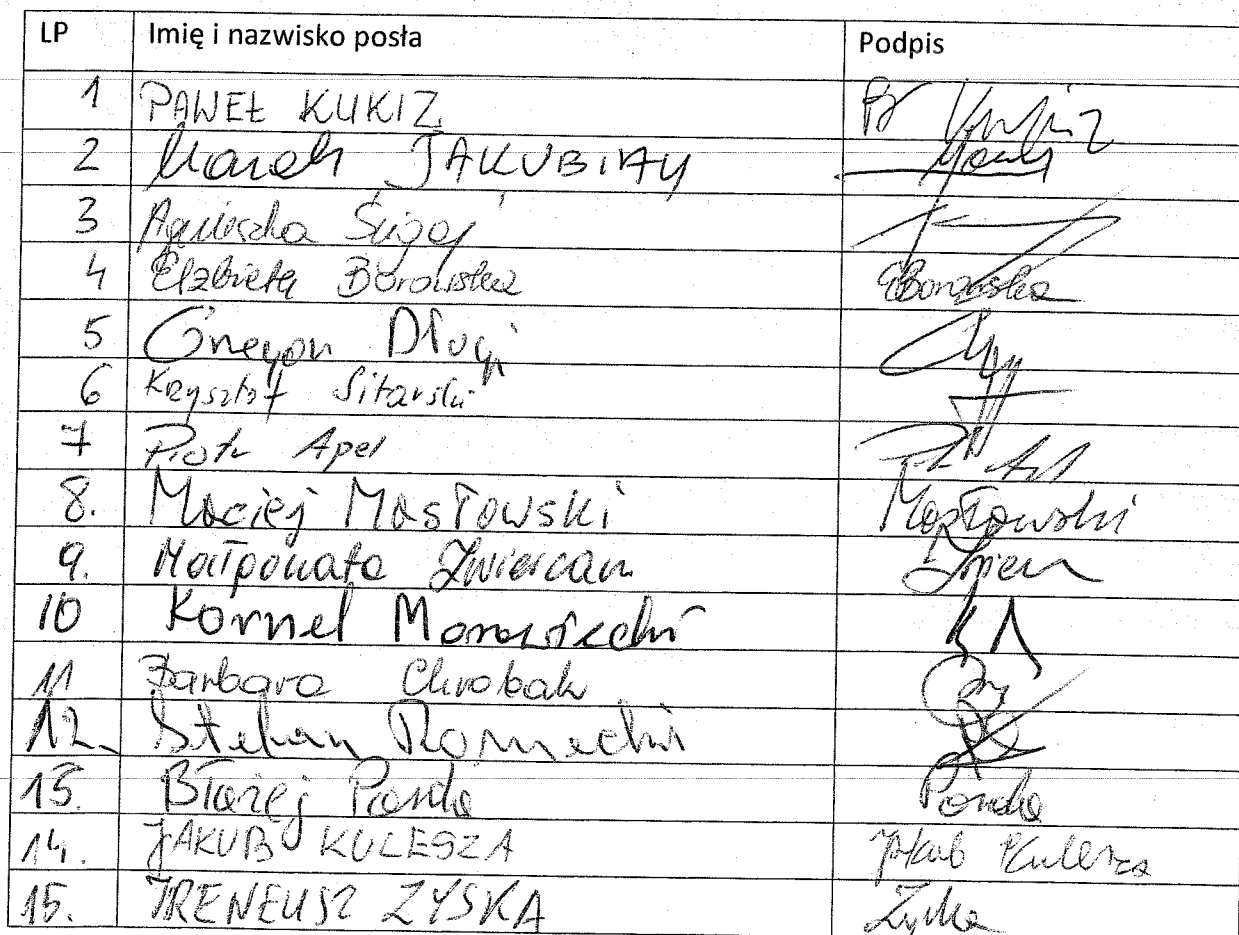 LP Imię i nazwisko posła Podpis
1 PAWEŁ KUKIZ Kukiz
2 Marek JAKUBIAK
3 Agnieszka Ścigaj
4 Elżbieta Borowska EBorowska
5 Grzegorz Długi
6 Krzysztof Sitarski
7 Piotr Apel
8. Maciej Masłowski Masłowski
9. Małgorzata Zwiercan
10 Kornel Morawiecki KM
11 Barbara Chrobak
12. Stefan Romecki
13. Błażej Parda Parda
14. JAKUB KULESZA Jakub Kulesza
15. IRENEUSZ ZYSKA Zyska